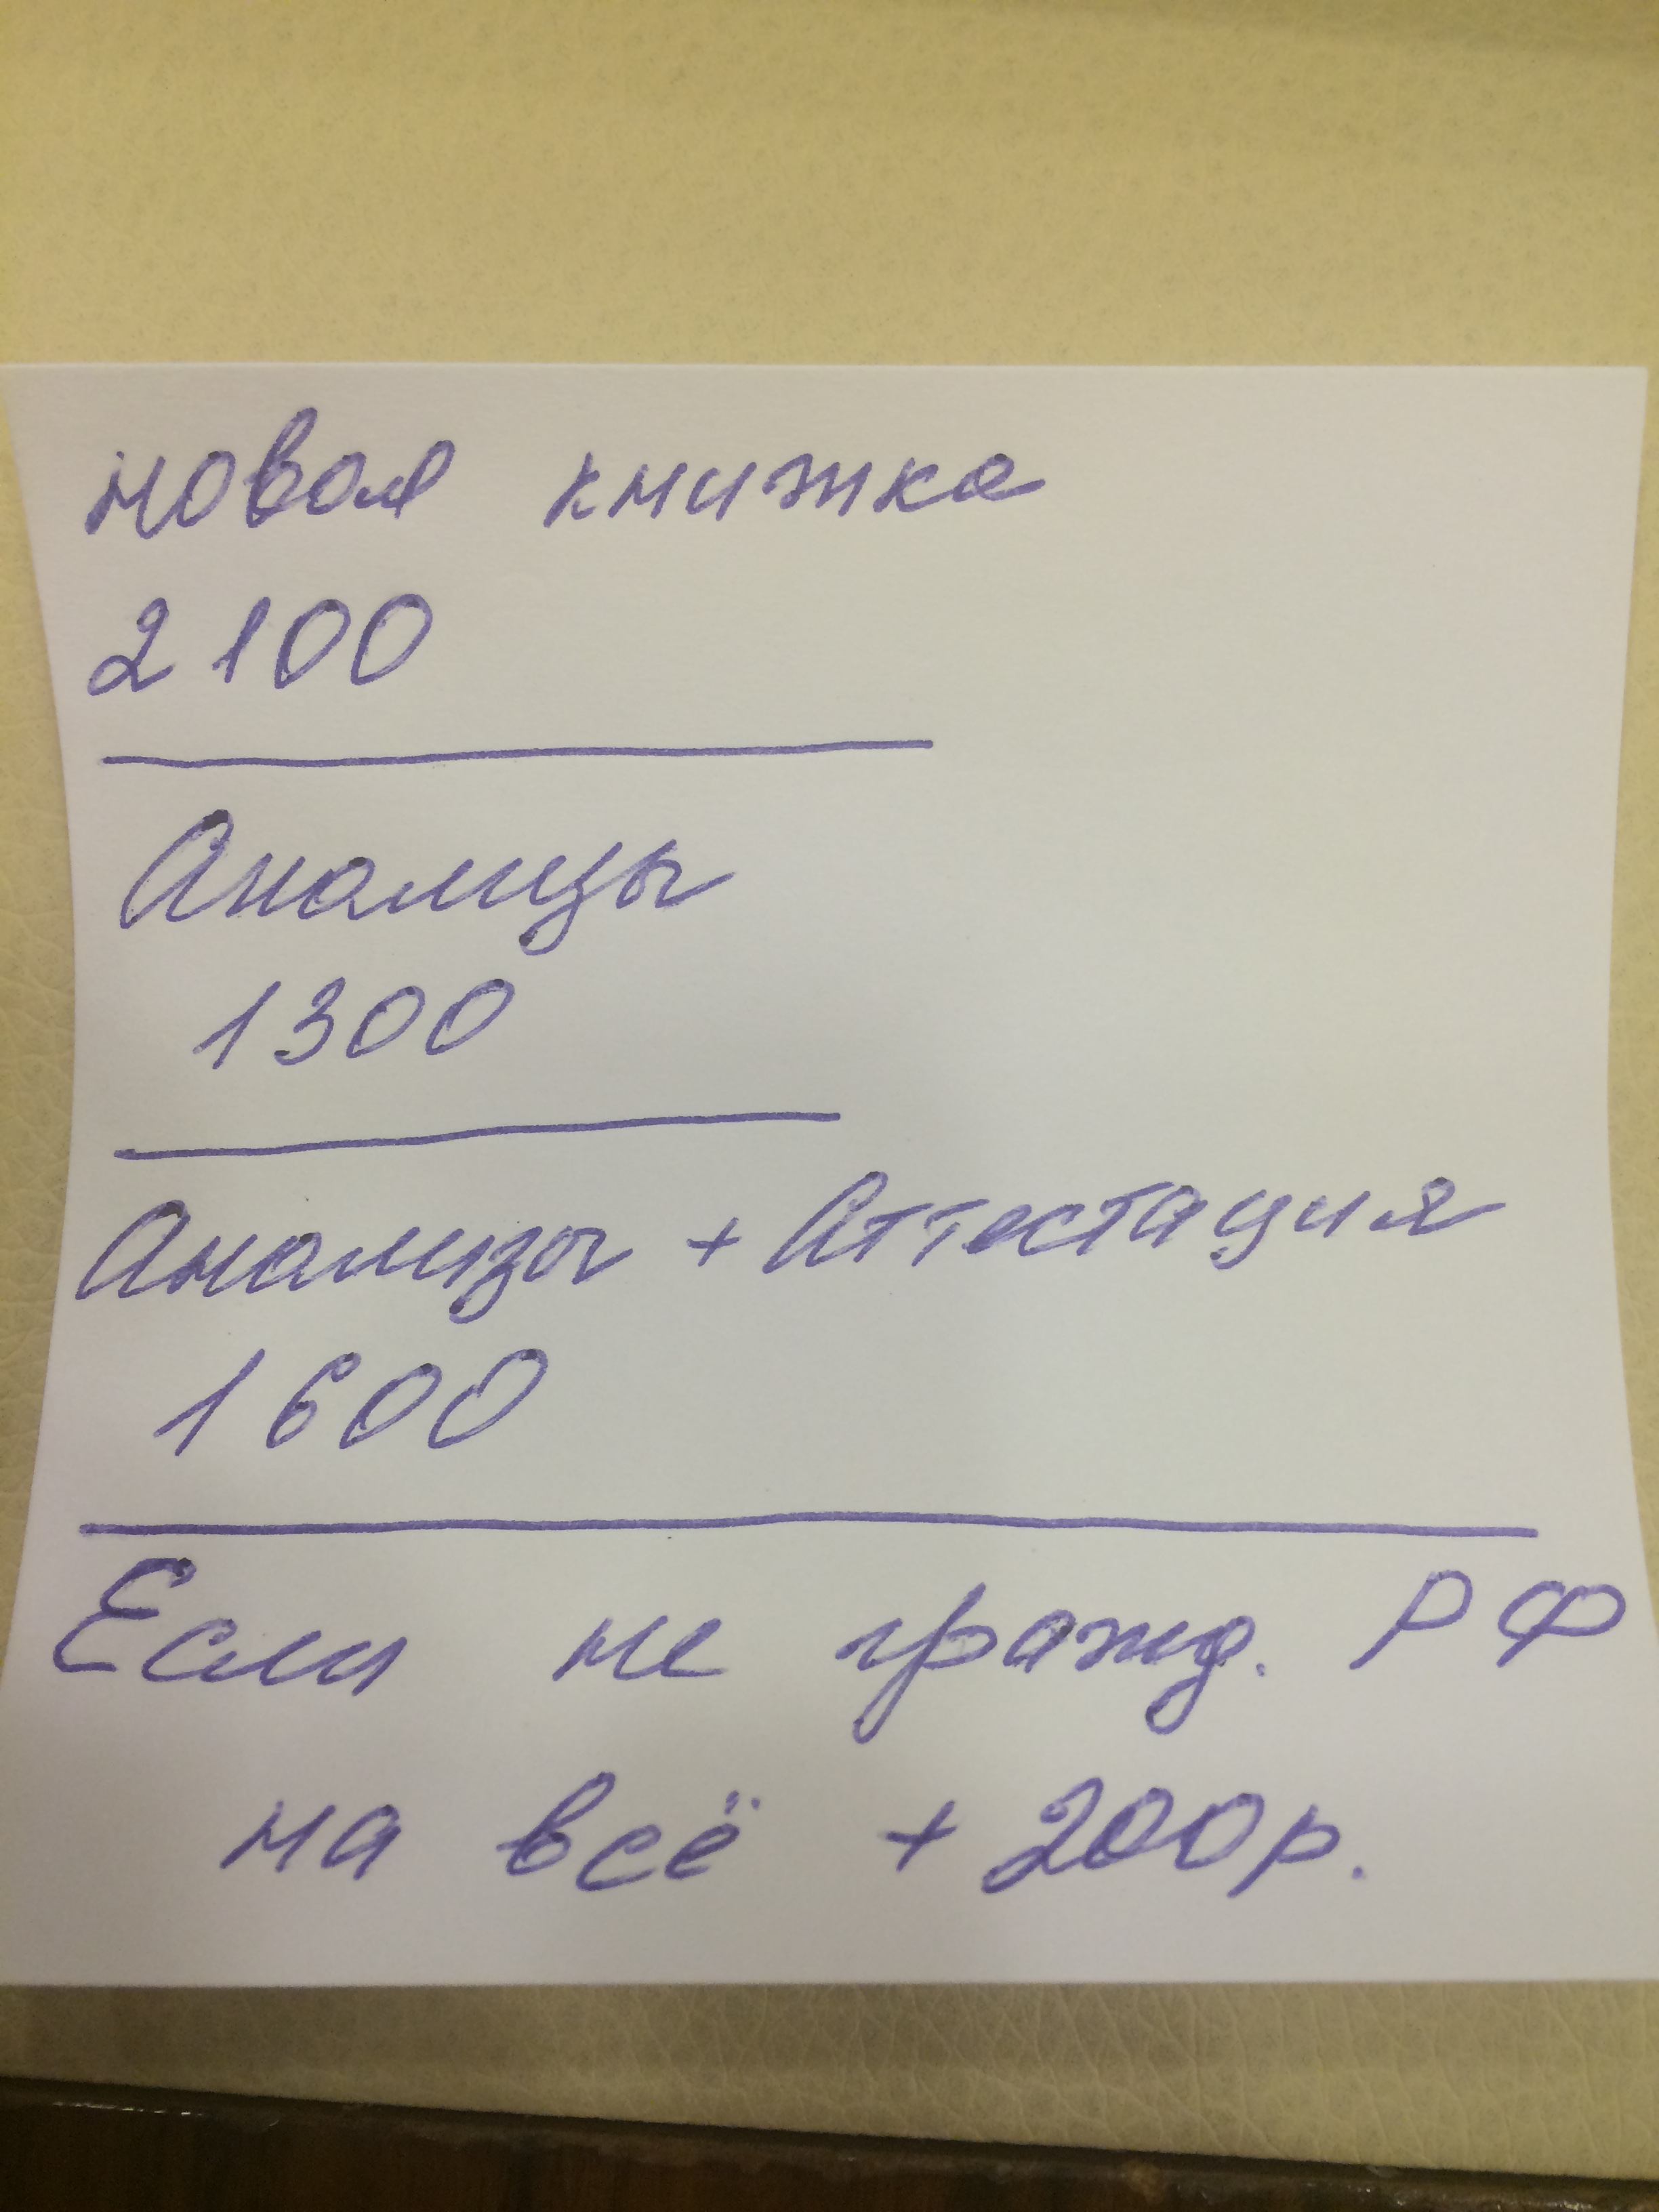 новая книжка
2100
Анализы
1300
Анализы + Аттестация
1600
Если не гражд. РФ
на всё + 200р.